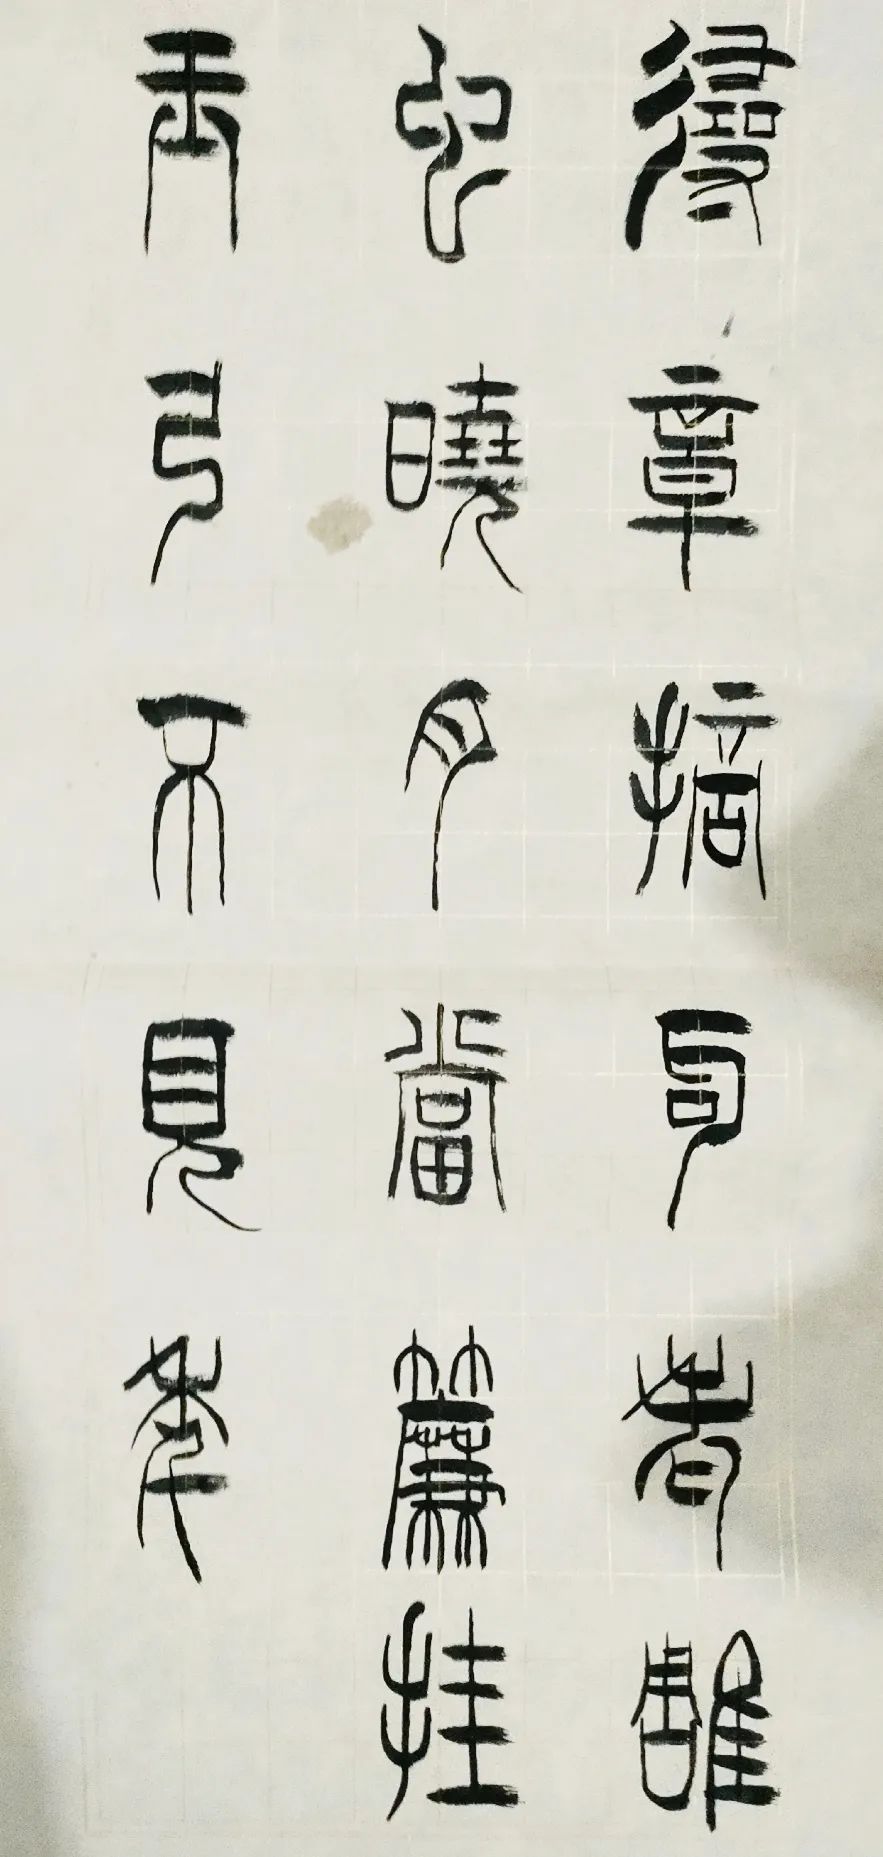 尋章摘句老雕
虫曉月當簾挂
玉弓不見年